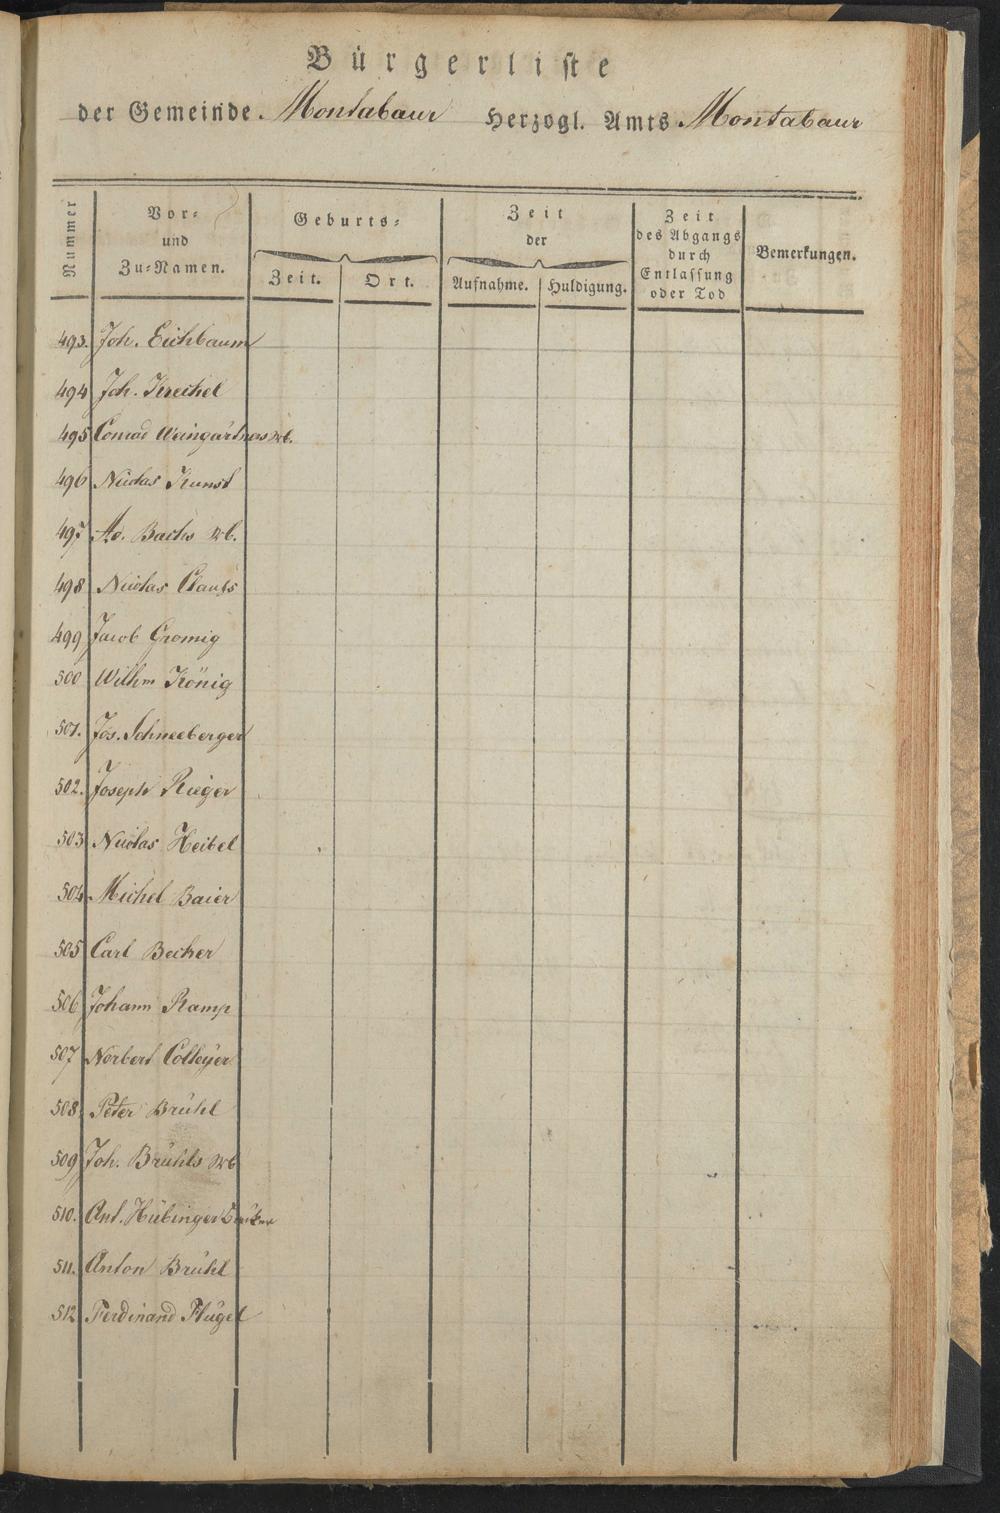 Bürgerliste
der Gemeinde Montabaur Herzogl. Amts Montabaur
Nummer
Vor- und Zu-Namen.
Geburts-
Zeit.
Ort.
Zeit der
Aufnahme.
Huldigung.
Zeit des Abgangs durch Entlassung oder Tod
Bemerkungen.
493. Joh. Eichbaum
494 Joh. Krechel
495 Conrad Weingärtners Wb.
496 Nicolas Kunst
497 Ad. Bachs Wb.
498 Nicolas Clauss
499 Jacob Gromig
500 Wilhm König
501. Jos. Schneeberger
502. Joseph Rieger
503 Nicolas Heibel
504 Michel Baier
505 Carl Becker
506 Johann Kamp
507 Norbert Colleyer
508. Peter Brühl
509 Joh. Brühls Wb
510. Ant. Hübinger
511. Anton Brühl
512 Ferdinand Flügel